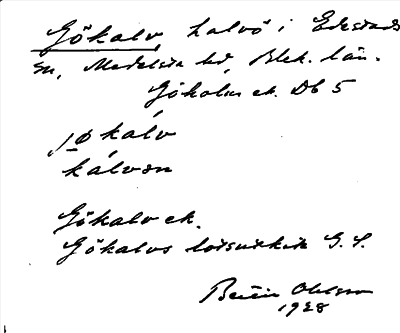 Gökalv, halvö i Edestads
sn, Medelsta hd, Blek. län.
Gökalv ek. Db 5
jø̀kalv
kálvən
Gökalv ek.
Gökalvs G. S.
Ohlsson
1928